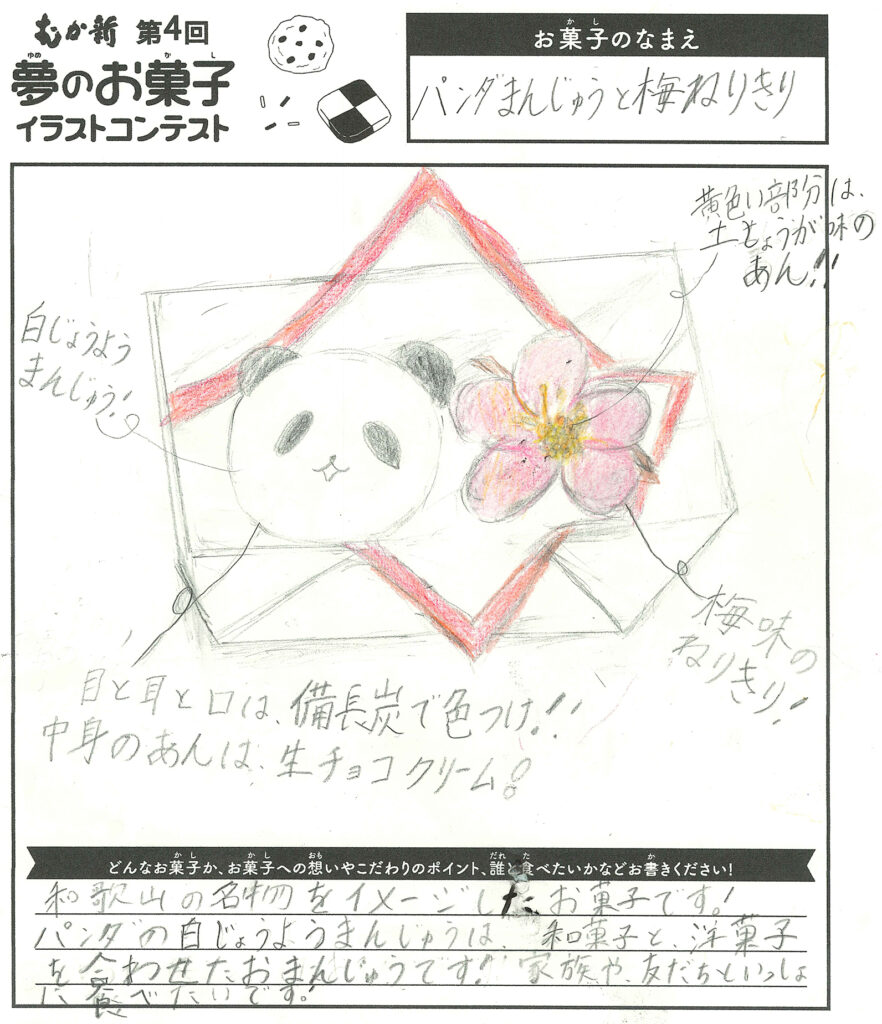 むか新 第4回
夢のお菓子
ゆめ かし
イラストコンテスト
お菓子のなまえ
かし
パンダまんじゅうと梅ねりきり
黄色い部分は、
土しょうが味の
あん!!
白じょうよう
まんじゅう!
梅味の
ねりきり!
目と耳と口は、備長炭で色つけ!!
中身のあんは、生チョコクリーム!
どんなお菓子か、お菓子への想いやこだわりのポイント、誰と食べたいかなどお書きください!
かし かし おも だれ た か
和歌山の名物をイメージしたお菓子です!
パンダの白じょうようまんじゅうは、和菓子と、洋菓子
を合わせたおまんじゅうです!家族や、友だちといっしょ
に食べたいです!